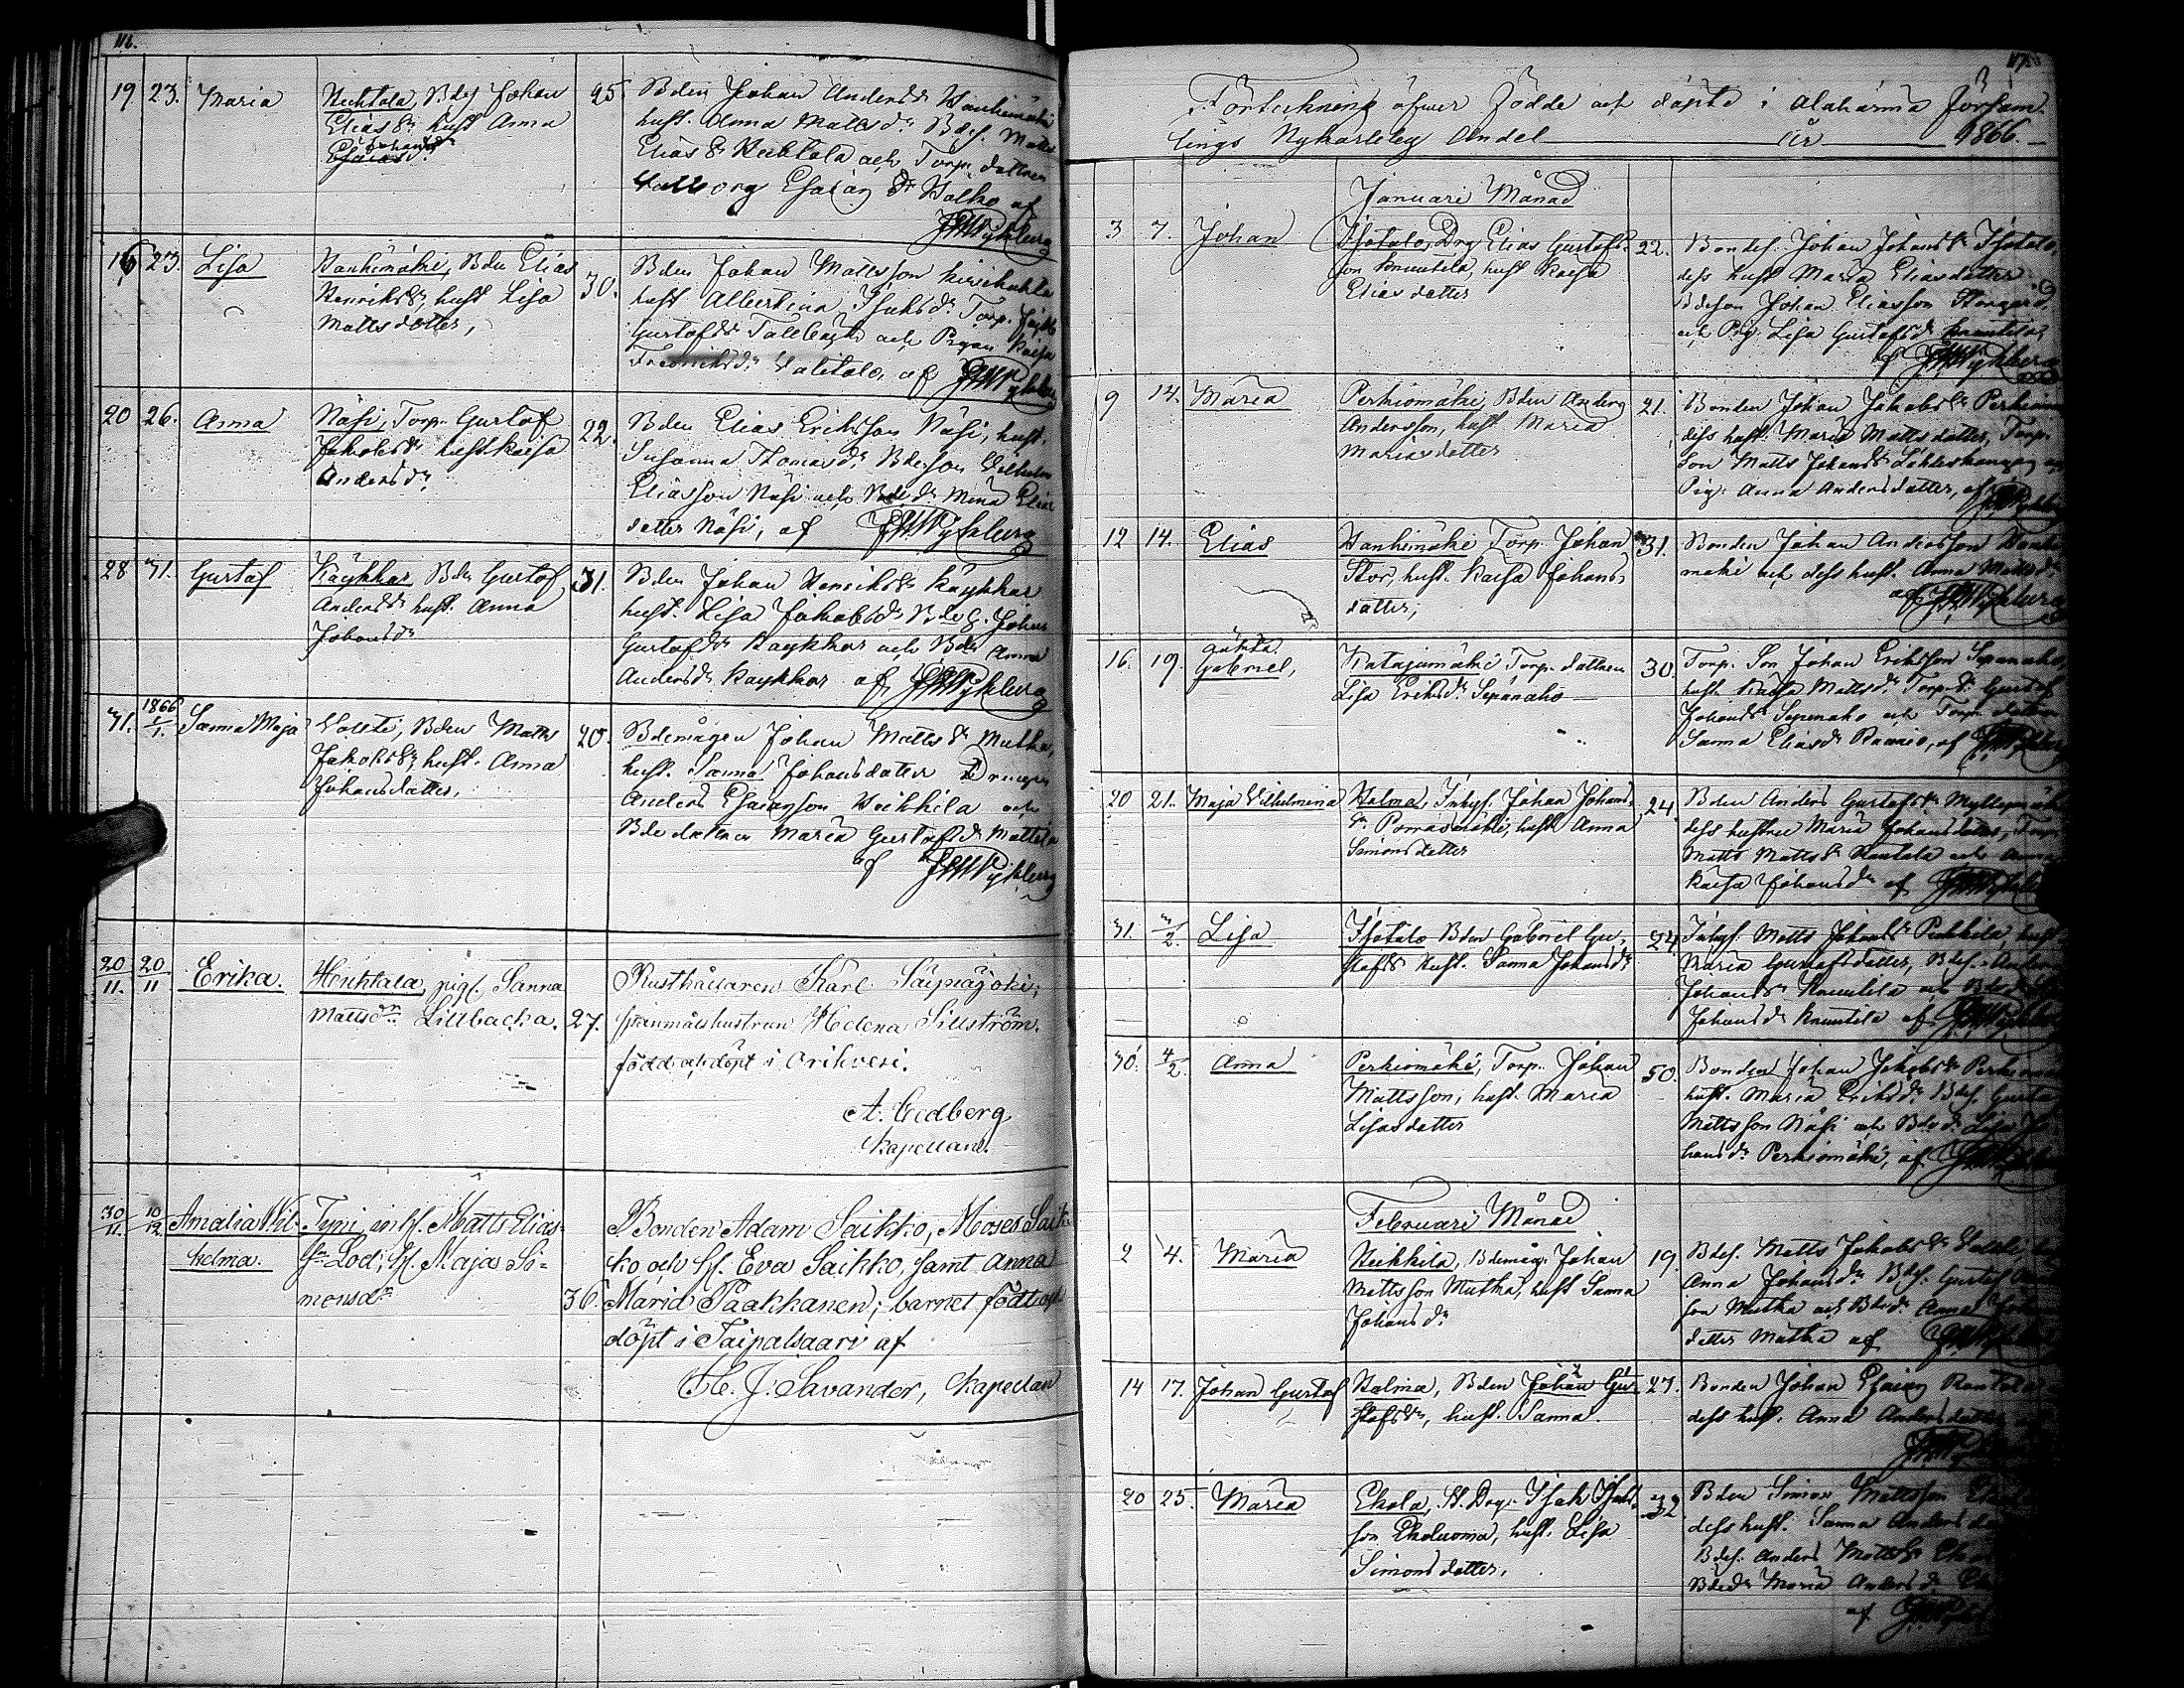 116.
19 23. Maria
Huhtala, Bdes Johan
Elias Sn hust Anna
Johansdr
Esaiasdr
25.
Bden Johan Anders Sn Hanhimäki
hust. Anna Mattsdr Bdes. Matts
Elias Sn Huhtala och Torp. dottren
Wallborg Esaiæ dr Walko af
16 23. Lisa
Hanhimäki, Bden Elias
Henriks Sn, hust Lisa
Mattsdotter,
30.
Bden Johan Mattsson
hust Albertina Isaksdr Torp.
Gustafs Sn Tallbacka och Pigan Kaisa
Fredriksdr Ualitalo, af
20 26. Anna
Näsi, Torp. Gustaf
Jakobs Sn hust. Kaisa
Andersdr
22.
Bden Elias Eriksson Näsi, hust.
Susanna Thomasdr Bdeson Wilhelm
Eliasson Näsi och Bdedr Mina Elias
dotter Näsi, af
28 31. Gustaf
Käykkar Bden Gustaf
Anders Sn hust. Anna
Johansdr
31.
Bden Johan Henriks Sn Kaykkar
hust. Lisa Jakobsdr Bdes. Johan
Gustafs Sn Kaykkar och Bdedr Anna
Andersdr Kaykkar af
31. 1866 1/1. Sanna Maja
Wolsti, Bden Matts
Jakobs Sn, hust. Anna
Johansdotter,
20.
Bdemågen Johan Matts Sn Mutka,
hust. Sanna Johansdotter Drengen
Anders Esaiasson Heikkilä och
Bdedottren Maria Gustafsdr Mattila
af
20/11. 20/11 Erika.
Huhtala, pig. Sanna
Mattsdr Lillbacka. 27.
Rusthållaren Karl Säpiäjoki;
spanmålshustrun Helena Sillström.
född och döpt i Orihvesi.
A. Cedberg
Kapellan.
30/11. 10/12. Amalia Wil-
helmina.
Tyni, inh. Matts Elias-
Sn Lod; H. Maja Si-
monsdr
36.
Bonden Adam Saikko, Moses Saik-
ko och H. Eva Saikko samt Anna
Maria Paakkanen; barnet född och
döpt i Taipalsaari af
H. J. Savander, Kapellan
117.
Förteckning öfwer födde och döpte i Alahärmä Försam-
lings Nykarleby Andel År 1866.
Januari Månad
3 7. Johan
Isotalo, Drg Elias Gustafs-
son Knuutila, hust Kaisa
Eliasdotter
22.
Bondes. Johan Johans Sn Isotalo,
dess hust Maria Eliasdotter
Bdeson Johan Eliasson
och Pig. Lisa Gustafsdr Knuutila,
af
9 14. Maria
Perkiömäki, Bden Anders
Andersson, hust Maria
Mariasdotter
21.
Bonden Johan Jakobs Sn Perkiöm
dess hust. Maria Mattsdotter, Torp.
Son Matts Johans Sn
Pig. Anna Andersdotter, af
12 14. Elias
Hanhimäki Torp. Johan
Stor, hust. Kaisa Johans-
dotter;
31.
Bonden Johan Andersson Hanhi
mäki och dess hust. Anna Mattsdr
af
16. 19. oäkta
Gabriel,
Katajamäki Torp. dottren
Lisa Eriksdr Sepänaho
30.
Torp. Son Johan Eriksson Sepänaho,
hust. Kaisa Mattsdr Torp. S. Gustaf
Johans Sn Sepänaho och Torp. dottren
Sanna Eliasdr , af
20 21. Maja Wilhelmina
Halma, Inhys. Johan Johans-
Sn Porrasmäki, hust Anna
Simonsdotter
24.
Bden Anders Gustafs Sn Myllymäki
dess hustru Maria Johansdotter, Torp.
Matts Matts Sn Rantala och Anna
Kaisa Johansdr af
31. 3/2. Lisa
Isotalo Bden Gabriel Gu-
stafs Sn hust. Sanna Johansdr
24
Inhys. Matts Johans Sn Pirkkilä, hust
Maria Gustafsdotter, Bdes. Anders
Johans Sn Knuutila och Bdedr
Johansdr Knuutila af
30. 4/2. Anna
Perkiömäki, Torp. Johan
Mattsson, hust. Maria
Lisasdotter
50.
Bonden Johan Jakobs Sn Perkiöm
hust. Maria Eriksdr Bdes. Gustaf
Mattsson Näsi och Bdedr Lisa Jo
hansdr Perkiömäki, af
Februari Månad
2 4. Maria
Heikkilä, Bdemåg. Johan
Mattsson Mutka, hust Sanna
Johansdr
19.
Bdes. Matts Jakobs Sn
Anna Johansdr Bdes. Gustaf
son Mutka och Bdedr Anna
dotter Mutka af
14 17. Johan Gustaf
Halma, Bden Johan Gu-
stafs Sn, hust. Sanna.
27.
Bonden Johan Esaiæ Rantala
dess hust. Anna Andersdotter
20 25. Maria
Ekola, St. Drg. Isak Isaks-
son Ekoluoma, hust. Lisa
Simonsdotter,
32.
Bden Simon Mattsson
dess hust. Sanna Anders
Bdes. Anders Matts Sn
Bdedr Maria Andersdr
af